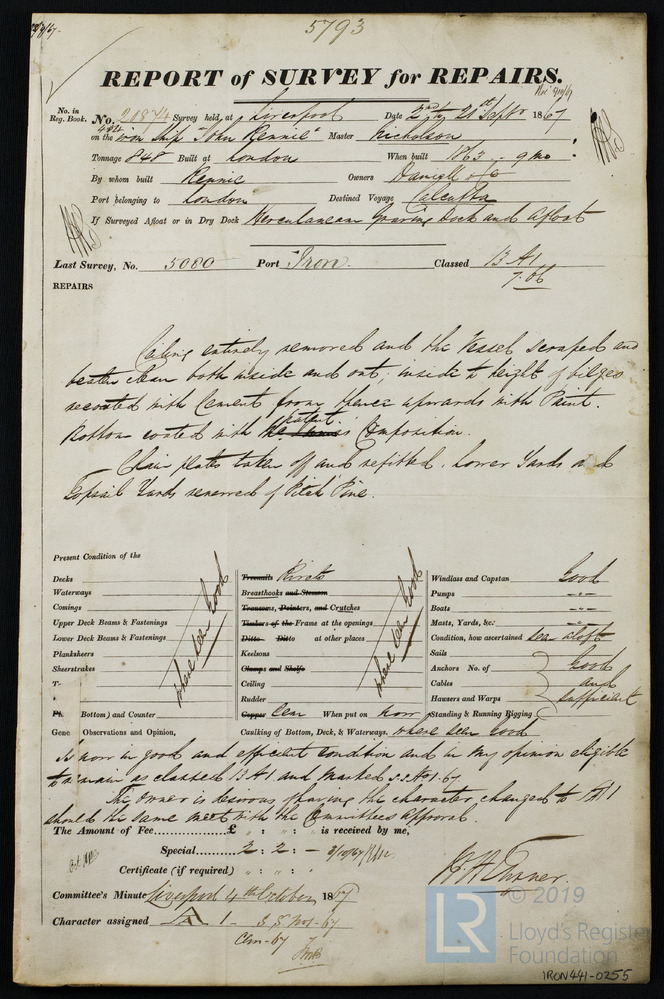 5793
REPORT of SURVEY for REPAIRS.
No. in Reg. Book. No. 20874 Survey held, at Liverpool Date 2nd to 21st Septr 1867
on the Iron Ship "John Rennie" Master Nicholson
Tonnage 848 Built at London When built 1863 - 9 mo
By whom built Rennie Owners Daniell & Co
Port belonging to London Destined Voyage Calcutta
If Surveyed Afloat or in Dry Dock Herculaneum Graving Dock and Afloat
Last Survey, No. 5080 Port Iron. Classed B A1
7.06
REPAIRS
Ceiling entirely removed and the Vessel scraped and
beaten clean both inside and out, inside to height of bilges
recoated with Cement from thence upwards with Paint.
Bottom coated with patent Composition.
Chain plates taken off and refitted. Lower Yards and
Topsail Yards renewed of Pitch Pine.
Present Condition of the
Decks
Waterways
Comings
Upper Deck Beams & Fastenings
Lower Deck Beams & Fastenings
Planksheers
Sheerstrakes
Bottom) and Counter
where seen Good
Treenails Rivets
Breasthooks and Stemson
Transoms, Pointers, and Crutches
Timbers of the Frame at the openings
Ditto Ditto at other places
Keelsons
Clamps and Shelfs
Ceiling
Rudder
Copper Cem When put on now
where seen Good
Windlass and Capstan Good
Pumps -"-
Boats -"-
Masts, Yards, &c. -"-
Condition, how ascertained seen aloft
Sails
Anchors No. of
Cables
Hawsers and Warps
Standing & Running Rigging
Good and Sufficient
Gene Observations and Opinion, Caulking of Bottom, Deck, & Waterways. where seen Good
Is now in good and efficient condition and in my opinion eligible
to remain as classed B A1 and Marked S.S. No 1-67
The Owner is desirous of having the character changed to A1
should the same meet with the Committees approval.
The Amount of Fee......£ " : " : " is received by me,
Special...... 2 : 2 : -
Certificate (if required) " : " : "
Committee's Minute Liverpool 4th October 1867
Character assigned A 1 - S S No 1-67
Cem-67
© 2019
LR
Lloyd's Register
Foundation
IRON441-0255